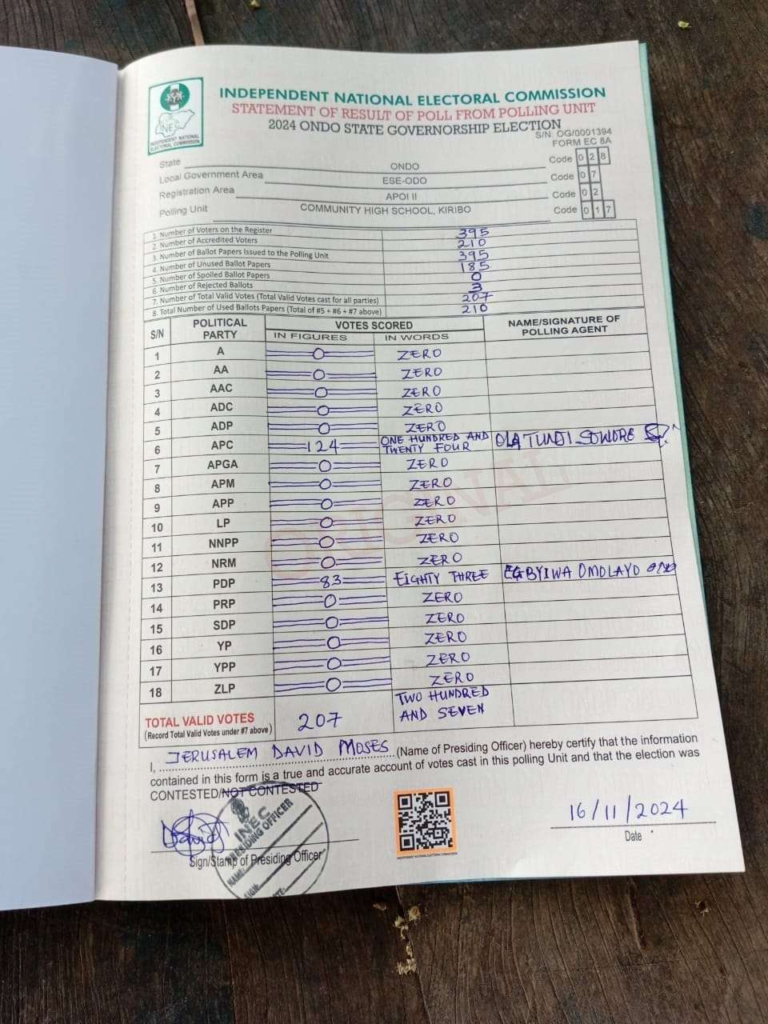 INDEPENDENT NATIONAL ELECTORAL COMMISSION
STATEMENT OF RESULT OF POLL FROM POLLING UNIT
2024 ONDO STATE GOVERNORSHIP ELECTION
S/N: OG/0001394
FORM EC 8A
INDEPENDENT NATIONAL ELECTORAL COMMISSION
State ONDO Code 028
Local Government Area ESE-ODO Code 07
Registration Area APOI II Code 02
Polling Unit COMMUNITY HIGH SCHOOL, KIRIBO Code 017
1. Number of Voters on the Register 395
2. Number of Accredited Voters 210
3. Number of Ballot Papers Issued to the Polling Unit 395
4. Number of Unused Ballot Papers 185
5. Number of Spoiled Ballot Papers 0
6. Number of Rejected Ballots 3
7. Number of Total Valid Votes (Total Valid Votes cast for all parties) 207
8. Total Number of Used Ballots Papers (Total of #5 + #6 + #7 above) 210
S/N POLITICAL PARTY VOTES SCORED NAME/SIGNATURE OF POLLING AGENT
IN FIGURES IN WORDS
1 A 0 ZERO
2 AA 0 ZERO
3 AAC 0 ZERO
4 ADC 0 ZERO
5 ADP 0 ZERO
6 APC 124 ONE HUNDRED AND TWENTY FOUR OLATUNJI SOWORE
7 APGA 0 ZERO
8 APM 0 ZERO
9 APP 0 ZERO
10 LP 0 ZERO
11 NNPP 0 ZERO
12 NRM 0 ZERO
13 PDP 83 EIGHTY THREE EGBYIWA OMOLAYO
14 PRP 0 ZERO
15 SDP 0 ZERO
16 YP 0 ZERO
17 YPP 0 ZERO
18 ZLP 0 ZERO
TOTAL VALID VOTES 207 TWO HUNDRED AND SEVEN
(Record Total Valid Votes under #7 above)
ORIGINAL
I, JERUSALEM DAVID MOSES (Name of Presiding Officer) hereby certify that the information
contained in this form is a true and accurate account of votes cast in this polling Unit and that the election was
CONTESTED/NOT CONTESTED
INEC
PRESIDING OFFICER
NAME:
DATE:
16/11/2024
Sign/Stamp of Presiding Officer
Date